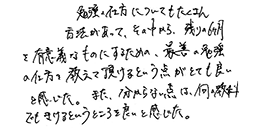 勉強の仕方についてもたくさん
方法があって、その中から、残り6ヶ月
を有意義なものにするための、最善の勉強
の仕方を教えて頂けるという点がとても良い
と感じた。また、分からない点は、何の教科
でもきけるというところを良いと感じた。